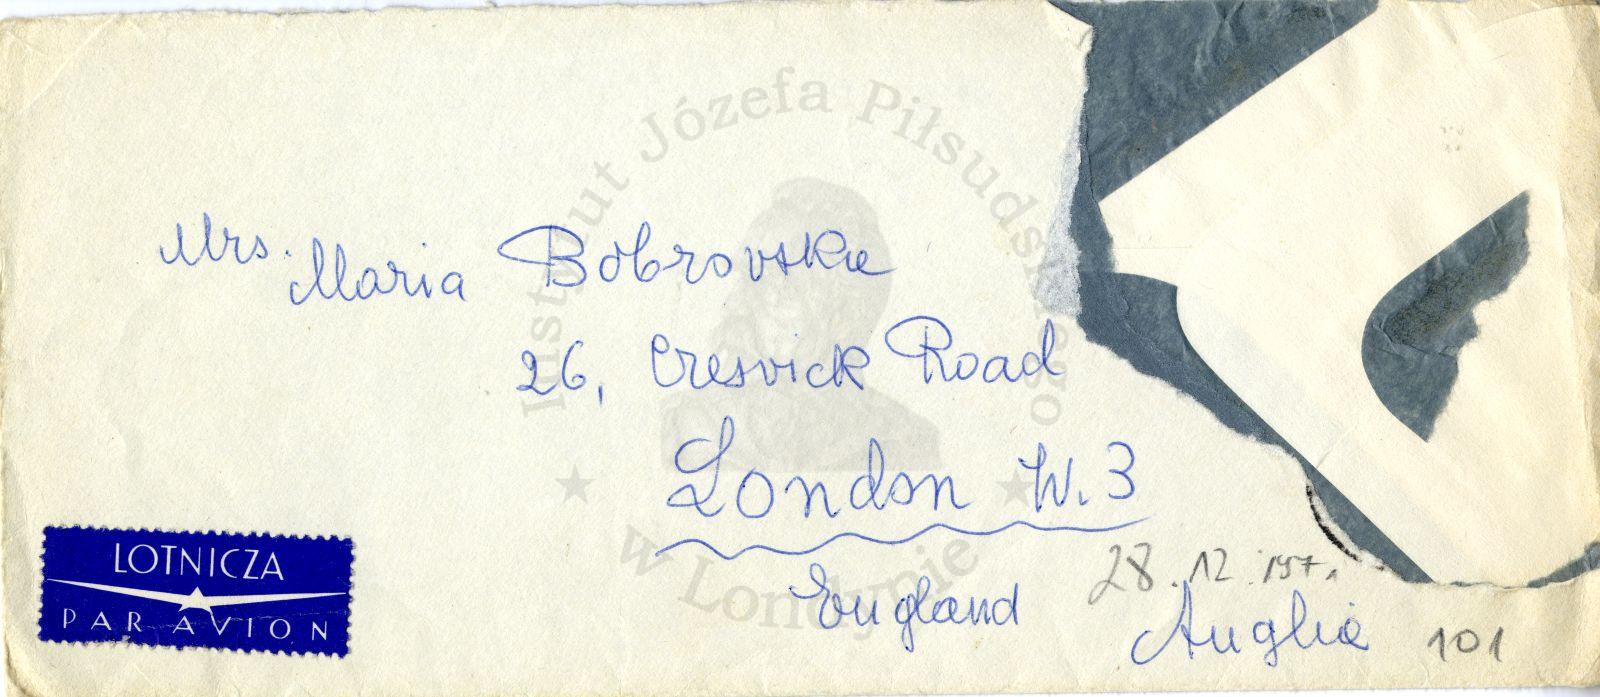 Instytut Józefa Piłsudskiego
w Londynie
Mrs. Maria Bobrovska
26, Cresvick Road
London W.3
England
Anglia
28.12.157.
101
LOTNICZA
PAR AVION